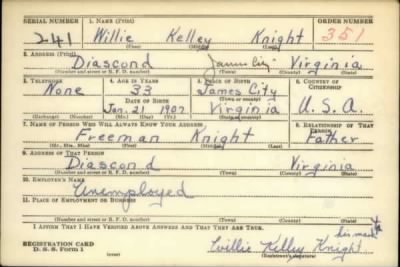 SERIAL NUMBER 1. NAME (Print) ORDER NUMBER
241 Willie Kelley Knight 351
(First) (Middle) (Last)
2. ADDRESS (Print)
Diascond James City Virginia
(Number and street or R. F. D. number) (Town) (County) (State)
3. TELEPHONE 4. AGE IN YEARS 5. PLACE OF BIRTH 6. COUNTRY OF CITIZENSHIP
None 33 James City
DATE OF BIRTH (Town or county)
Jan. 21 1907 Virginia U. S. A.
(Exchange) (Number) (Mo.) (Day) (Yr.) (State or country)
7. NAME OF PERSON WHO WILL ALWAYS KNOW YOUR ADDRESS 8. RELATIONSHIP OF THAT PERSON
Freeman Knight Father
(Mr., Mrs., Miss) (First) (Middle) (Last)
9. ADDRESS OF THAT PERSON
Diascond Virginia
(Number and street or R. F. D. number) (Town) (County) (State)
10. EMPLOYER'S NAME
Unemployed
11. PLACE OF EMPLOYMENT OR BUSINESS
(Number and street or R. F. D. number) (Town) (County) (State)
I AFFIRM THAT I HAVE VERIFIED ABOVE ANSWERS AND THAT THEY ARE TRUE.
his mark x
REGISTRATION CARD Willie Kelley Knight
D. S. S. Form 1 (Registrant's signature)